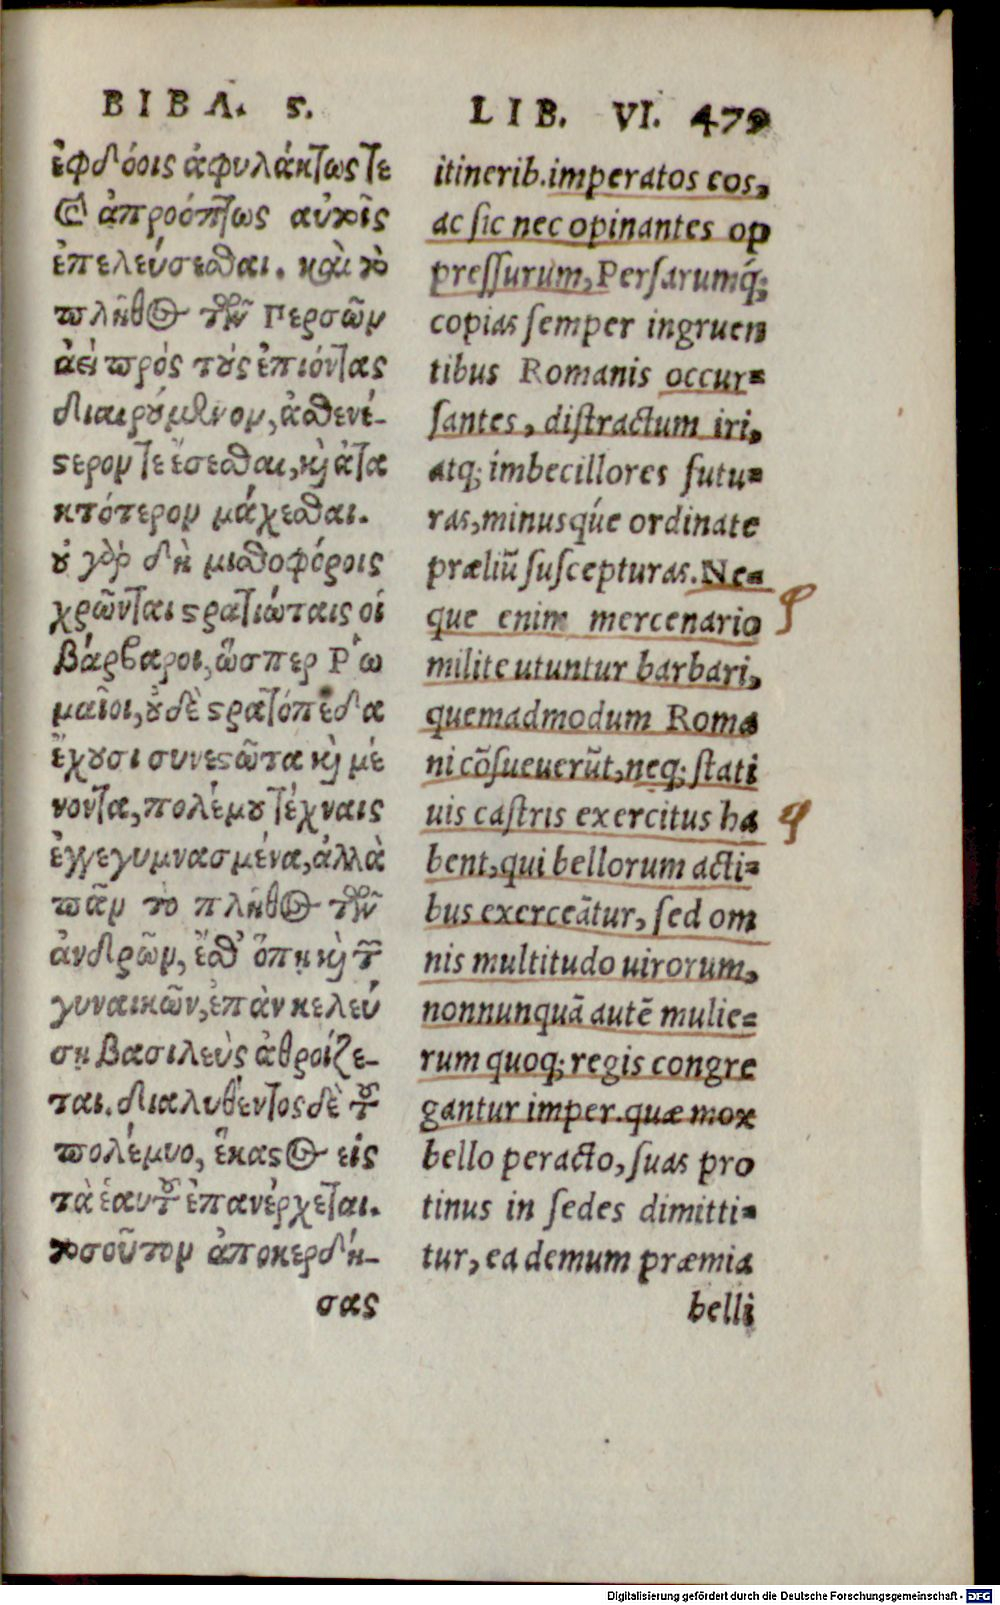 ΒΙΒΛ. ϛ.
ἐφόδοις ἀφυλάκτως τε
καὶ ἀπροόπτως αὐτοῖς
ἐπελεύσεσθαι. καὶ τὸ
πλῆθος τῶν Περσῶν
ἀεὶ πρὸς τοὺς ἐπιόντας
διαιρούμενον, ἀσθενέ-
στερον τε ἔσεσθαι, καὶ ἀτα
κτότερον μάχεσθαι.
οὐ γὰρ δὴ μισθοφόροις
χρῶνται στρατιώταις οἱ
βάρβαροι, ὥσπερ Ῥω
μαῖοι, οὐδὲ στρατόπεδα
ἔχουσι συνεστῶτα καὶ μέ
νοντα, πολέμου τέχναις
ἐγγεγυμνασμένα, ἀλλὰ
πᾶν τὸ πλῆθος τῶν
ἀνδρῶν, ἔσθ' ὅπῃ καὶ τῶν
γυναικῶν, ἐπὰν κελεύ
σῃ βασιλεὺς ἀθροίζε-
ται. διαλυθέντος δὲ τοῦ
πολέμυο, ἕκαστος εἰς
τὰ ἑαυτοῦ ἐπανέρχεται.
τοσοῦτον ἀποκερδή-
σας
LIB. VI. 479
itinerib. imperatos eos,
ac sic nec opinantes op
pressurum, Persarumq́;
copias semper ingruen
tibus Romanis occur=
santes, distractum iri,
atq; imbecillores futu=
ras, minusq́ue ordinate
præliũ suscepturas. Ne=
que enim mercenario
milite utuntur barbari,
quemadmodum Roma
ni cõsueuerũt, neq; stati
uis castris exercitus ha
bent, qui bellorum acti=
bus exerceãtur, sed om
nis multitudo uirorum,
nonnunquã autẽ mulie=
rum quoq; regis congre
gantur imper. quæ mox
bello peracto, suas pro
tinus in sedes dimitti=
tur, ea demum præmia
belli
Digitalisierung gefördert durch die Deutsche Forschungsgemeinschaft - DFG